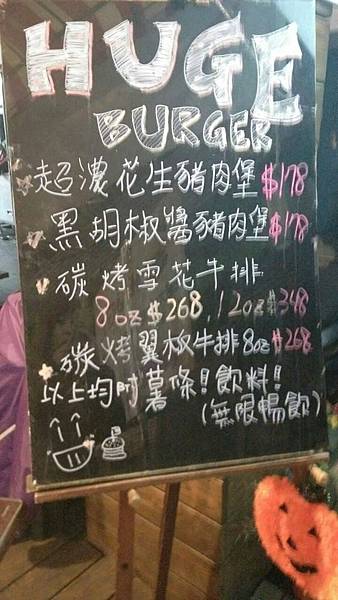 HUGE
BURGER
超濃花生豬肉堡$178
黑胡椒醬豬肉堡$178
碳烤雪花牛排
8oz$268,12oz$348
碳烤翼板牛排8oz$268
以上均附薯條!飲料!
(無限暢飲)